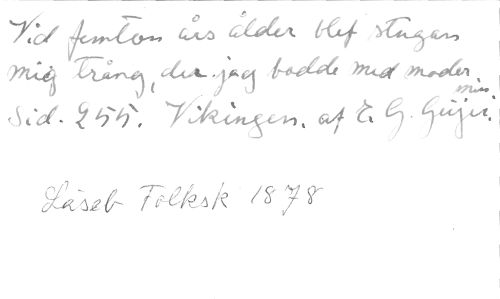 Vid femton års ålder blef stugan
mig trång, der jag bodde med moder
min.
Sid. 255. Vikingen. af E. G. Geijer.
Läseb Folksk 1878